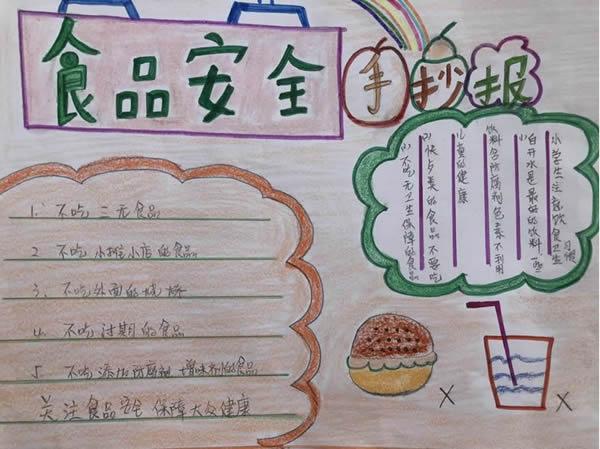 食品安全
手抄报
1. 不吃三无食品
2 不吃小摊小店的食品
3、不吃外面的烧烤
4 不吃过期的食品
5 不吃添加防腐剂 增味剂的食品
关注食品安全 保障大众健康
小学生注意饮食卫生习惯
(1)白开水是最好的饮料 一些
饮料含防腐剂色素不利用
儿真的健康
的食品不要吃
(3)不吃无卫生保障的食品
X
X